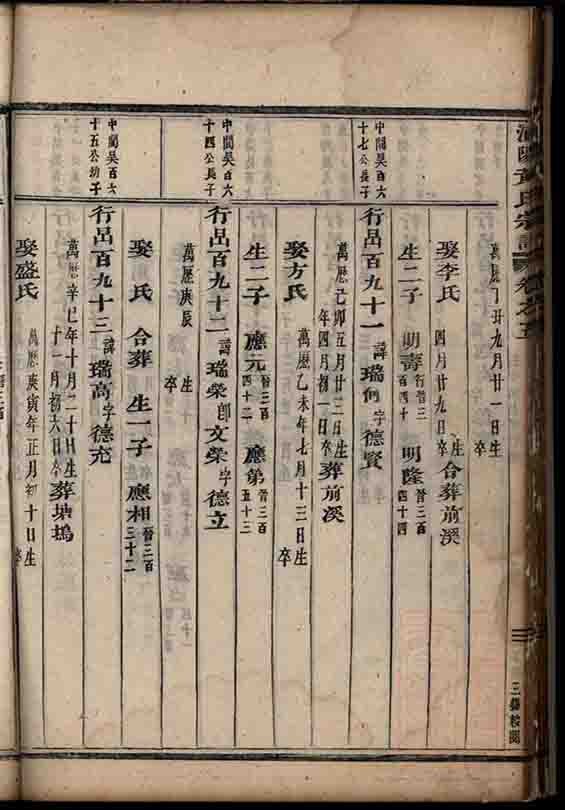 萬曆丁丑九月廿一日生
卒
娶李氏
生
四月廿九日卒
合葬前溪
生二子 明壽行晉三百四十 明隆晉三百四十四
中閶吳百六十七公長子
行昂百九十一 諱瑞 字德賢
萬曆己卯五月廿三日生
年四月初一日卒
葬前溪
娶方氏
萬曆乙未年七月十三日生
卒
生二子 應元晉三百四十二 應第晉三百五十三
中閶吳百六十四公長子
行昂百九十二 諱瑞榮郎文榮字德立
萬曆庚辰 生
卒
娶 氏 合葬 生一子 應相晉三百三十二
中閶吳百六十五公幼子
行昂百九十三 諱瑞高字德充
萬曆辛巳年十月二十日生
十一月初六日卒
葬塘塢
娶盛氏
萬曆庚寅年正月初十日生
卒
氏宗譜 卷之五